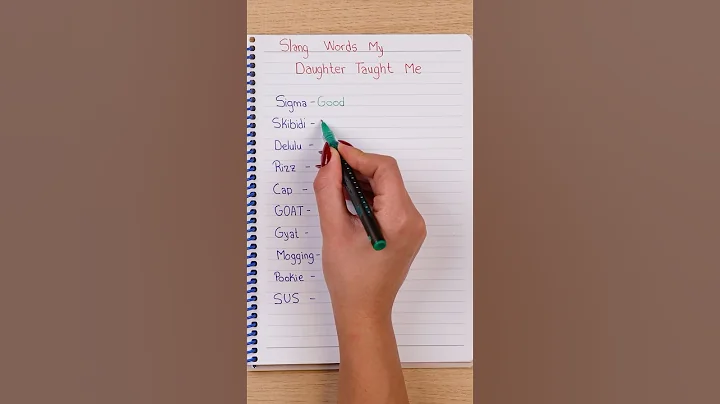 Slang Words My
Daughter Taught Me
Sigma - Good
Skibidi -
Delulu -
Rizz -
Cap -
GOAT -
Gyat -
Mogging -
Pookie -
SUS -